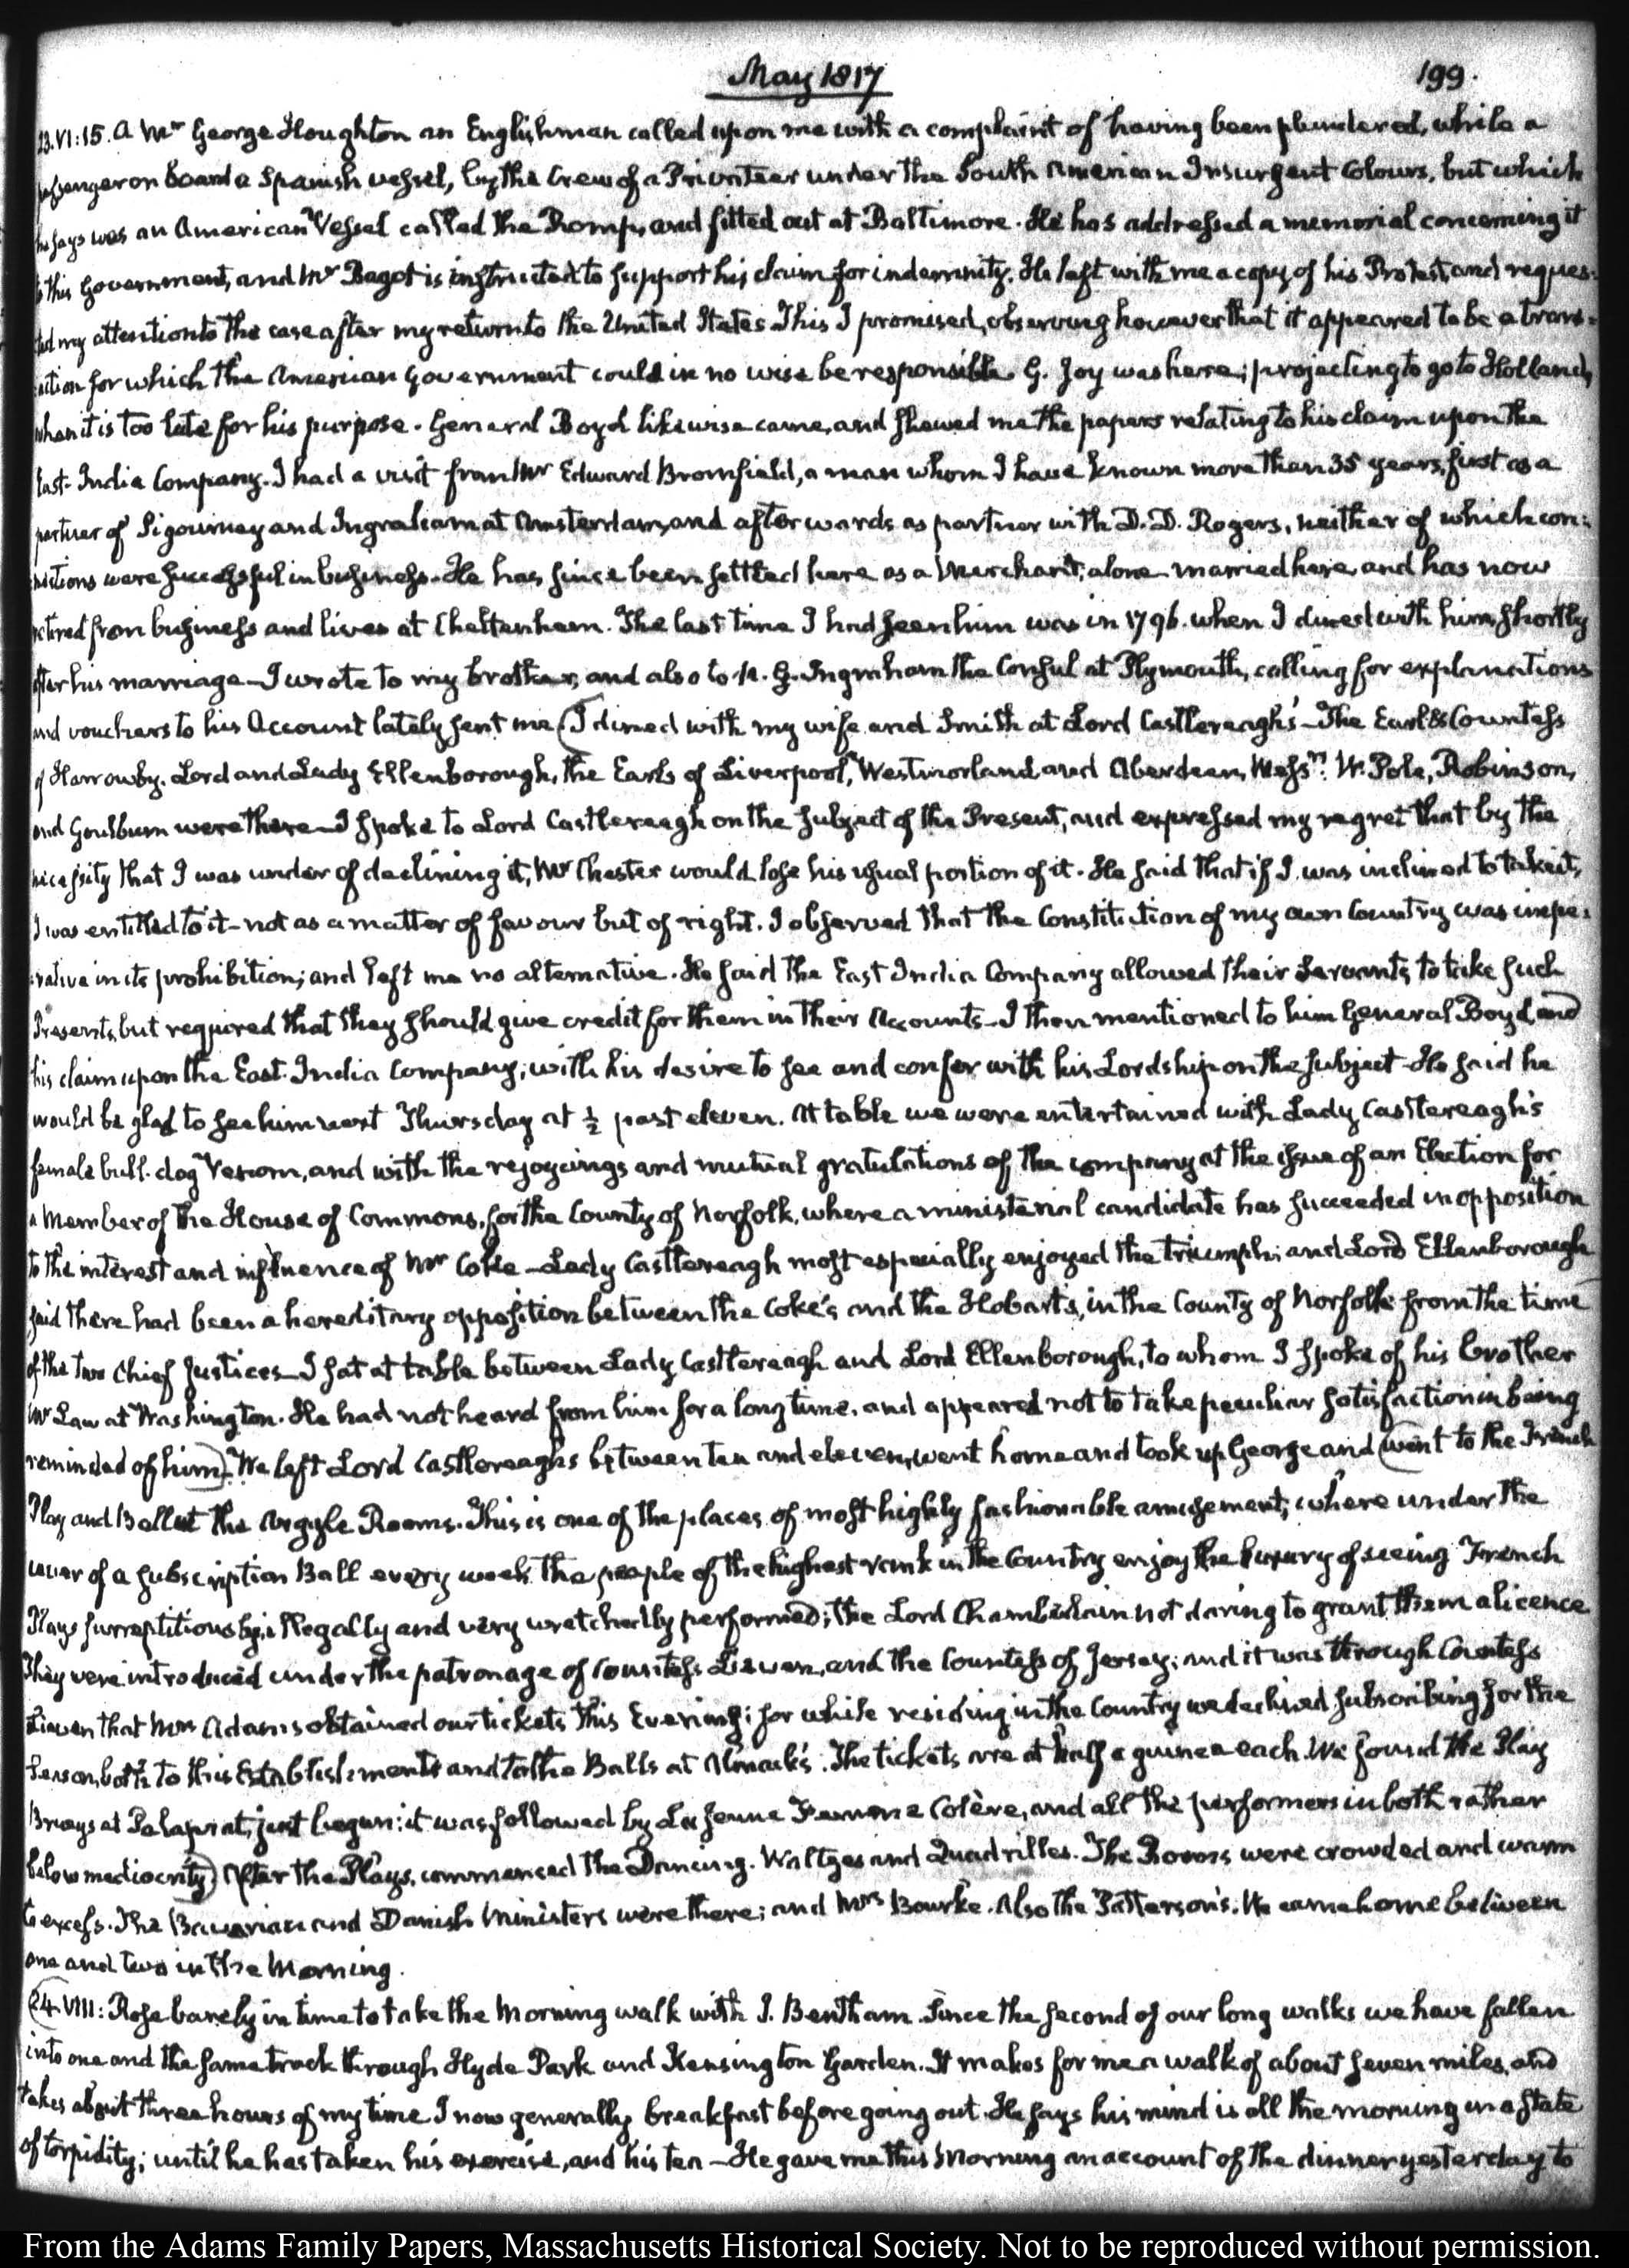 May 1817
199.
23. VI:15. A Mr George Houghton an Englishman called upon me with a complaint of having been plundered, while a
passenger on board a Spanish vessel, by the Crew of a Privateer under the South American Insurgent Colours, but which
he says was an American Vessel called the Romp, and fitted out at Baltimore. He has addressed a memorial concerning it
to this Government, and Mr Bagot is instructed to support his claim for indemnity. He left with me a copy of his Protest, and reques-
ted my attention to the case after my return to the United States. This I promised, observing however that it appeared to be a trans-
:action for which the American Government could in no wise be responsible. G. Joy was here; projecting to go to Holland,
when it is too late for his purpose. General Boyd likewise came, and shewed me the papers relating to his claim upon the
East-India Company. I had a visit from Mr Edward Bromfield, a man whom I have known more than 35 years, first as a
partner of Sigourney and Ingraham at Amsterdam, and afterwards as partner with D. D. Rogers, neither of which con-
:nections were successful in business. He has since been settled here as a Merchant, alone—married here, and has now
retired from business and lives at Cheltenham. The last time I had seen him was in 1796. when I dined with him, shortly
after his marriage—I wrote to my brother, and also to N. G. Ingraham the Consul at Plymouth, calling for explanations
and vouchers to his Account lately sent me (I dined with my wife and Smith at Lord Castlereagh's—The Earl & Countess
of Harrowby. Lord and Lady Ellenborough, the Earls of Liverpool, Westmorland and Aberdeen, Messrs. W. Pole, Robinson,
and Goulburn were there—I spoke to Lord Castlereagh on the subject of the Present, and expressed my regret that by the
necessity that I was under of declining it, Mr Chester would lose his usual portion of it. He said that if I was inclined to take it,
I was entitled to it—not as a matter of favour but of right. I observed that the Constitution of my own Country was impe-
:rative in its prohibition; and left me no alternative. He said the East India Company allowed their Servants to take such
Presents, but required that they should give credit for them in their Accounts—I then mentioned to him General Boyd, and
his claim upon the East-India Company; with his desire to see and confer with his Lordship on the subject—He said he
would be glad to see him next Thursday at ½ past eleven. At table we were entertained with Lady Castlereagh's
female bull-dog Venom, and with the rejoycings and mutual gratulations of the company at the issue of an Election for
a Member of the House of Commons, for the County of Norfolk, where a ministerial candidate has succeeded in opposition
to the interest and influence of Mr Coke—Lady Castlereagh most especially enjoyed the triumph; and Lord Ellenborough
said there had been a hereditary opposition between the Coke's and the Hobarts, in the County of Norfolk from the time
of the two Chief Justices—I sat at table between Lady Castlereagh and Lord Ellenborough, to whom I spoke of his brother
Mr Law at Washington. He had not heard from him for a long time, and appeared not to take peculiar satisfaction in being
reminded of him). We left Lord Castlereagh's between ten and eleven, went home and took up George and (went to the French
Play and Ball at the Argyle Rooms. This is one of the places of most highly fashionable amusement; where under the
cover of a subscription Ball every week the people of the highest rank in the Country enjoy the luxury of seeing French
Plays surreptitiously, illegally and very wretchedly performed; the Lord Chamberlain not daring to grant them a licence
They were introduced under the patronage of Countess Lieven, and the Countess of Jersey; and it was through Countess
Lieven that Mrs Adams obtained our tickets this Evening; for while residing in the Country we declined subscribing for the
season, both to this Establishment and to the Balls at Almack's. The tickets are at half a guinea each. We found the Play
Brueys et Palaprat, just begun: it was followed by La Jeune Femme Colère, and all the performers in both rather
below mediocrity) After the Plays, commenced the Dancing. Waltzes and Quadrilles. The Rooms were crowded and warm
to excess. The Bavarian and Danish Ministers were there; and Mrs Bourke. Also the Patterson's. We came home between
one and two in the Morning.
(24. VIII: Rose barely in time to take the Morning walk with J. Bentham. Since the second of our long walks we have fallen
into one and the same track through Hyde Park and Kensington Garden. It makes for me a walk of about seven miles, and
takes about three hours of my time. I now generally breakfast before going out. He says his mind is all the morning in a state
of torpidity; until he has taken his exercise, and his tea—He gave me this Morning an account of the dinner yesterday to
From the Adams Family Papers, Massachusetts Historical Society. Not to be reproduced without permission.